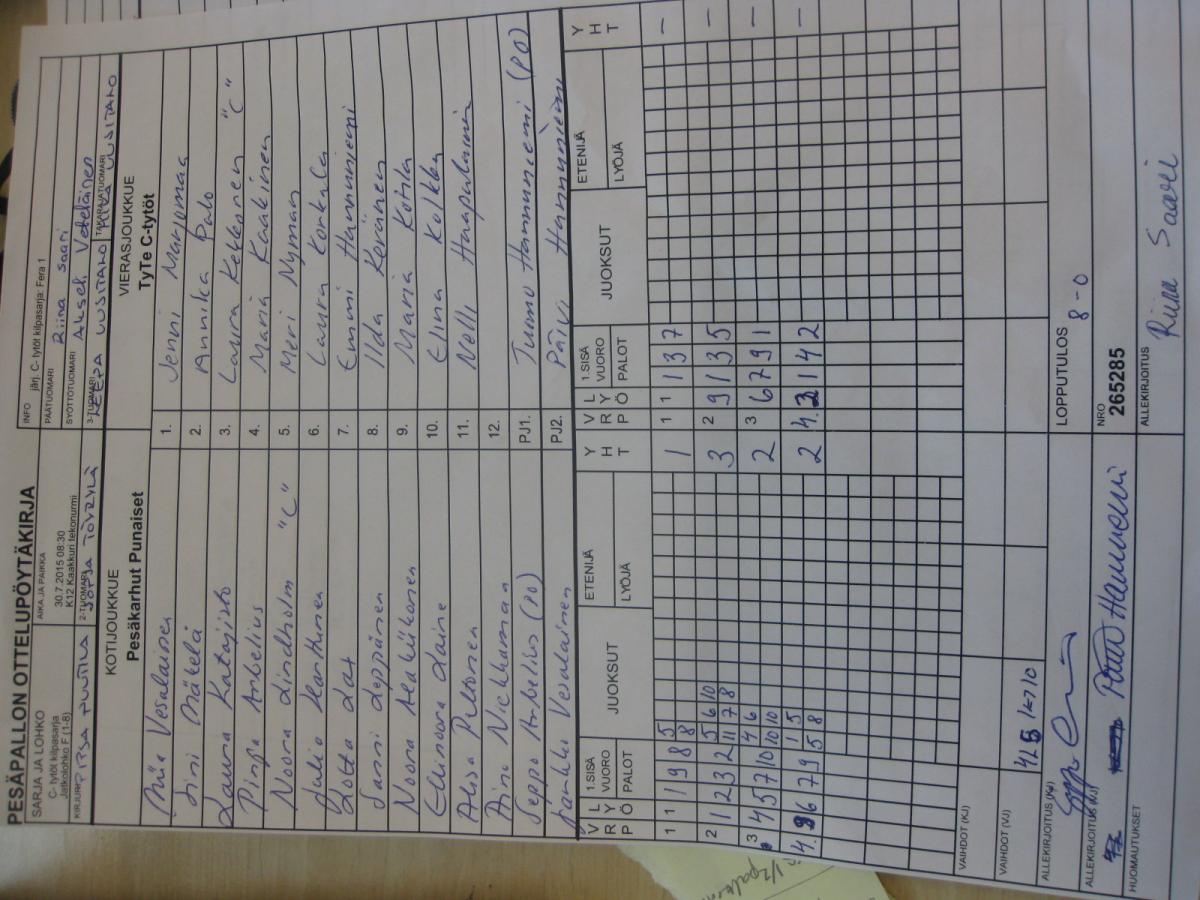 PESÄPALLON OTTELUPÖYTÄKIRJA
SARJA JA LOHKO
C- tytöt kilpasarja
Jatkolohko F (1-8)
AIKA JA PAIKKA
30.7.2015 08:30
K12 Kaakkuri tekonurmi
INFO järj. C- tytöt kilpasarja: Fera 1
PÄÄTUOMARI Riina Saari
SYÖTTÖTUOMARI Akseli Veteläinen
KIRJURI
2-TUOMARI
3-TUOMARI EEPA UUSITALO
TAKARAJATUOMARI UUSITALO
KOTIJOUKKUE
Pesäkarhut Punaiset
VIERASJOUKKUE
TyTe C-tytöt
Miia Vesalainen 1. Jenni Marjomaa
Sini Mäkelä 2. Annika Palo
Laura Katajisto 3. Laura Kekkonen "C"
Pinja Arbelius 4. Maria Kaakinen
Noora Lindholm "C" 5. Meri Nyman
Julia Karttunen 6. Laura Korkala
Lotta Lax 7. Emmi Hannuniemi
Sanni Leppänen 8. Iida Keränen
Noora Ala-Kiikonen 9. Maria Kotila
Ellinoora Laine 10. Elina Kolkka
Alisa Peltonen 11. Nelli Haapalainen
Aino Vickhaman 12.
Seppo Arbelius (PO) PJ1. Tuomo Hannuniemi (PO)
Jarkko Vesalainen PJ2. Päivi Hannuniemi
V R P L Y Ö 1.SISÄ VUORO PALOT JUOKSUT ETENIJÄ LYÖJÄ Y H T V R P L Y Ö 1.SISÄ VUORO PALOT JUOKSUT ETENIJÄ LYÖJÄ Y H T
1 1 1 9 8 5 8 1 1 1 1 3 7 –
2 1 2 3 2 5 6 10 11 7 8 3 2 9 1 3 5 –
3 4 5 7 10 4 6 10 10 2 3 6 7 9 1 –
4. 8 6 7 9 1 5 5 8 2 4. 2 1 4 2 –
VAIHDOT (KJ)
VAIHDOT (VJ)
ALLEKIRJOITUS (KJ)
LOPPUTULOS 8-0
ALLEKIRJOITUS (VJ) Hannuniemi
NRO
265285
HUOMAUTUKSET
ALLEKIRJOITUS Riina Saari